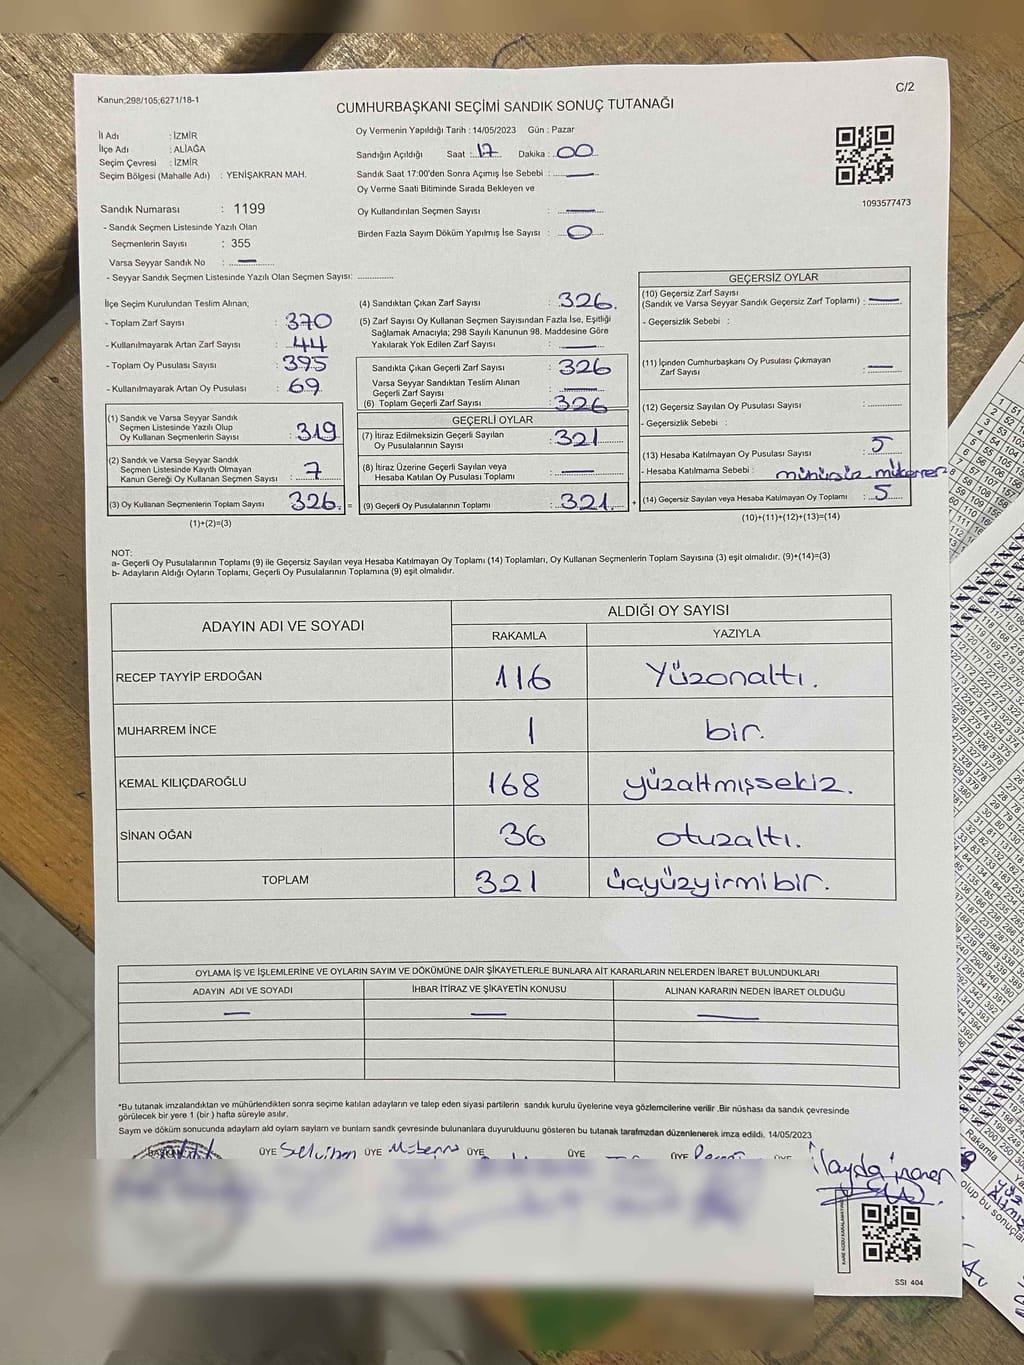 Kanun;298/105;6271/18-1
C/2
CUMHURBAŞKANI SEÇİMİ SANDIK SONUÇ TUTANAĞI
İl Adı : İZMİR
İlçe Adı : ALİAĞA
Seçim Çevresi : İZMİR
Seçim Bölgesi (Mahalle Adı) : YENİŞAKRAN MAH.
Sandık Numarası : 1199
- Sandık Seçmen Listesinde Yazılı Olan
Seçmenlerin Sayısı : 355
Varsa Seyyar Sandık No : —
- Seyyar Sandık Seçmen Listesinde Yazılı Olan Seçmen Sayısı: ............
Oy Vermenin Yapıldığı Tarih : 14/05/2023 Gün : Pazar
Sandığın Açıldığı Saat : 17 Dakika : 00
Sandık Saat 17:00'den Sonra Açımış İse Sebebi : —
Oy Verme Saati Bitiminde Sırada Bekleyen ve
Oy Kullandırılan Seçmen Sayısı : —
Birden Fazla Sayım Döküm Yapılmış İse Sayısı : 0
1093577473
İlçe Seçim Kurulundan Teslim Alınan;
- Toplam Zarf Sayısı : 370
- Kullanılmayarak Artan Zarf Sayısı : 44
- Toplam Oy Pusulası Sayısı : 395
- Kullanılmayarak Artan Oy Pusulası : 69
(1) Sandık ve Varsa Seyyar Sandık
Seçmen Listesinde Yazılı Olup
Oy Kullanan Seçmenlerin Sayısı : 319
(2) Sandık ve Varsa Seyyar Sandık
Seçmen Listesinde Kayıtlı Olmayan
Kanun Gereği Oy Kullanan Seçmen Sayısı : 7
(3) Oy Kullanan Seçmenlerin Toplam Sayısı : 326 =
(1)+(2)=(3)
(4) Sandıktan Çıkan Zarf Sayısı : 326
(5) Zarf Sayısı Oy Kullanan Seçmen Sayısından Fazla İse, Eşitliği
Sağlamak Amacıyla; 298 Sayılı Kanunun 98. Maddesine Göre
Yakılarak Yok Edilen Zarf Sayısı : —
Sandıkta Çıkan Geçerli Zarf Sayısı : 326
Varsa Seyyar Sandıktan Teslim Alınan
Geçerli Zarf Sayısı : —
(6) Toplam Geçerli Zarf Sayısı : 326
GEÇERLİ OYLAR
(7) İtiraz Edilmeksizin Geçerli Sayılan
Oy Pusulalarının Sayısı : 321
(8) İtiraz Üzerine Geçerli Sayılan veya
Hesaba Katılan Oy Pusulası Toplamı : —
(9) Geçerli Oy Pusulalarının Toplamı : 321 +
GEÇERSİZ OYLAR
(10) Geçersiz Zarf Sayısı
(Sandık ve Varsa Seyyar Sandık Geçersiz Zarf Toplamı) : —
- Geçersizlik Sebebi :
(11) İçinden Cumhurbaşkanı Oy Pusulası Çıkmayan
Zarf Sayısı : —
(12) Geçersiz Sayılan Oy Pusulası Sayısı : ...........
- Geçersizlik Sebebi :
(13) Hesaba Katılmayan Oy Pusulası Sayısı : 5
- Hesaba Katılmama Sebebi : mühürsiz mükerrer
(14) Geçersiz Sayılan veya Hesaba Katılmayan Oy Toplamı : 5
(10)+(11)+(12)+(13)=(14)
NOT:
a- Geçerli Oy Pusulalarının Toplamı (9) ile Geçersiz Sayılan veya Hesaba Katılmayan Oy Toplamı (14) Toplamları, Oy Kullanan Seçmenlerin Toplam Sayısına (3) eşit olmalıdır. (9)+(14)=(3)
b- Adayların Aldığı Oyların Toplamı, Geçerli Oy Pusulalarının Toplamına (9) eşit olmalıdır.
ADAYIN ADI VE SOYADI ALDIĞI OY SAYISI
RAKAMLA YAZIYLA
RECEP TAYYİP ERDOĞAN 116 Yüzonaltı.
MUHARREM İNCE 1 bir.
KEMAL KILIÇDAROĞLU 168 yüzaltmışsekiz.
SİNAN OĞAN 36 otuzaltı.
TOPLAM 321 üçyüzyirmibir.
OYLAMA İŞ VE İŞLEMLERİNE VE OYLARIN SAYIM VE DÖKÜMÜNE DAİR ŞİKAYETLERLE BUNLARA AİT KARARLARIN NELERDEN İBARET BULUNDUKLARI
ADAYIN ADI VE SOYADI İHBAR İTİRAZ VE ŞİKAYETİN KONUSU ALINAN KARARIN NEDEN İBARET OLDUĞU
— — —
*Bu tutanak imzalandıktan ve mühürlendikten sonra seçime katılan adayların ve talep eden siyasi partilerin sandık kurulu üyelerine veya gözlemcilerine verilir .Bir nüshası da sandık çevresinde
görülecek bir yere 1 (bir ) hafta süreyle asılır.
Sayım ve döküm sonucunda adayların aldı oyların sayların ve bunların sandık çevresinde bulunanlara duyurulduunu gösteren bu tutanak tarafımzdan düzenlenerek imza edildi. 14/05/2023
ÜYE ÜYE ÜYE ÜYE ÜYE
SSI 404